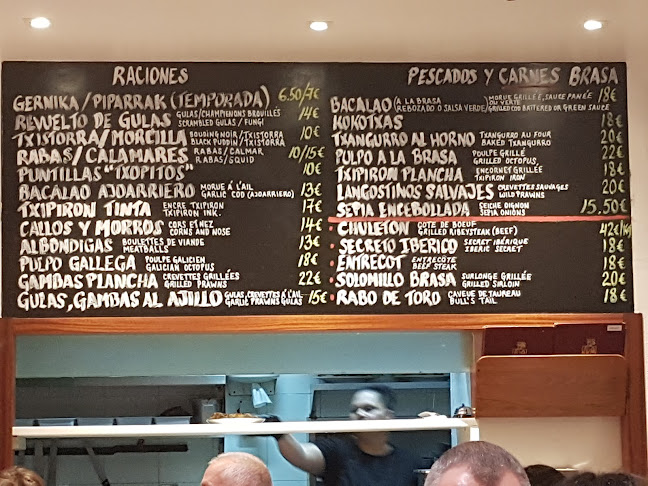 RACIONES
GERNIKA/PIPARRAK (TEMPORADA) 6.50/7€
REVUELTO DE GULAS GULAS/CHAMPIÑONS BROUILLÉS SCRAMBLED GULAS/FUNGI 14€
TXISTORRA/MORCILLA BOUDING NOIR/TXISTORRA BLACK PUDDIN/TXISTORRA 10€
RABAS/CALAMARES RABAS/CALMAR RABAS/SQUID 10/15€
PUNTILLAS "TXOPITOS" 10€
BACALAO AJOARRIERO MORUE À L'AIL GARLIC COD (AJOARRIERO) 13€
TXIPIRON TINTA ENCRE TXIPIRON TXIPIRON INK. 17€
CALLOS Y MORROS CORS ET NEZ CORNS AND NOSE 14€
ALBONDIGAS BOULETTES DE VIANDE MEATBALLS 13€
PULPO GALLEGA POULPE GALICIEN GALICIAN OCTOPUS 18€
GAMBAS PLANCHA CREVETTES GRILLÉES GRILLED PRAWNS 22€
GULAS, GAMBAS AL AJILLO GULAS, CREVETTES À L'AIL GARLIC PRAWNS GULAS 15€
PESCADOS Y CARNES BRASA
BACALAO (A LA BRASA REBOZADO O SALSA VERDE) MORUE GRILLÉE, SAUCE PANÉE OU VERTE GRILLED COD BATTERED OR GREEN SAUCE 18€
KOKOTXAS 18€
TXANGURRO AL HORNO TXANGURRO AU FOUR BAKED TXANGURRO 20€
PULPO A LA BRASA POULPE GRILLÉ GRILLED OCTOPUS 22€
TXIPIRON PLANCHA ENCORNET GRILLÉE TXIPIRON IRON 18€
LANGOSTINOS SALVAJES CREVETTES SAUVAGES WILD PRAWNS 20€
SEPIA ENCEBOLLADA SEICHE OIGNON SEPIA ONIONS 15.50€
• CHULETON COTE DE BOEUF GRILLED RIBEYSTEAK (BEEF) 42€/KG
• SECRETO IBERICO SECRET IBÉRIQUE IBERIC SECRET 18€
• ENTRECOT ENTRECÔTE BEEF STEAK 18€
• SOLOMILLO BRASA SURLONGE GRILLÉE GRILLED SIRLOIN 20€
• RABO DE TORO CAVEUE DE TAUREAU BULL'S TAIL 18€